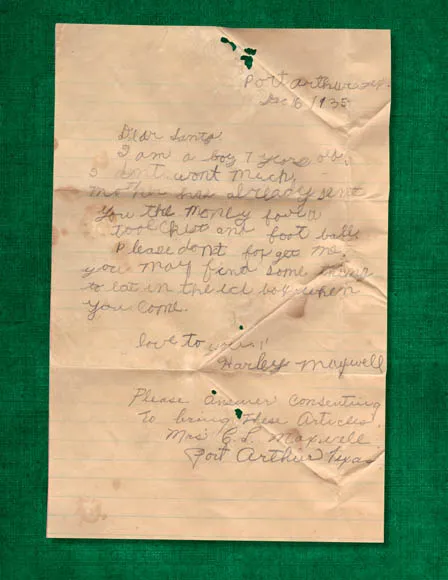 Port Arthur Tex.
Dec 6 / 1935
Dear Santa:
I am a boy 7 years old,
I want much,
mother has already sent
you the money for a
tool chest and foot ball
Please dont forget me,
you may find some thing
to eat in the ice box when
you come.
love to you!
Harley Maxwell
Please answer consenting
To bring these Articles
Mrs C. L. Maxwell
Port Arthur Texas